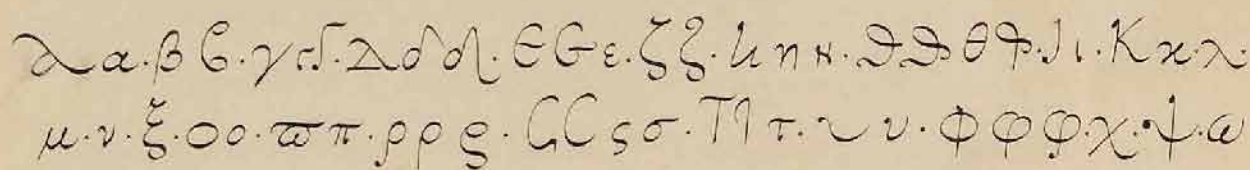 α α · β β · γ γ · Δ δ δ · Є Є ε · ζ ζ · η η н · ϑ ϑ θ ϑ · ι ι · Κ κ λ ·
μ · ν · ξ · ο ο · ϖ π · ρ ρ ρ · C C ς σ · Τ Τ τ · υ υ · Φ φ φ · χ · ψ · ω